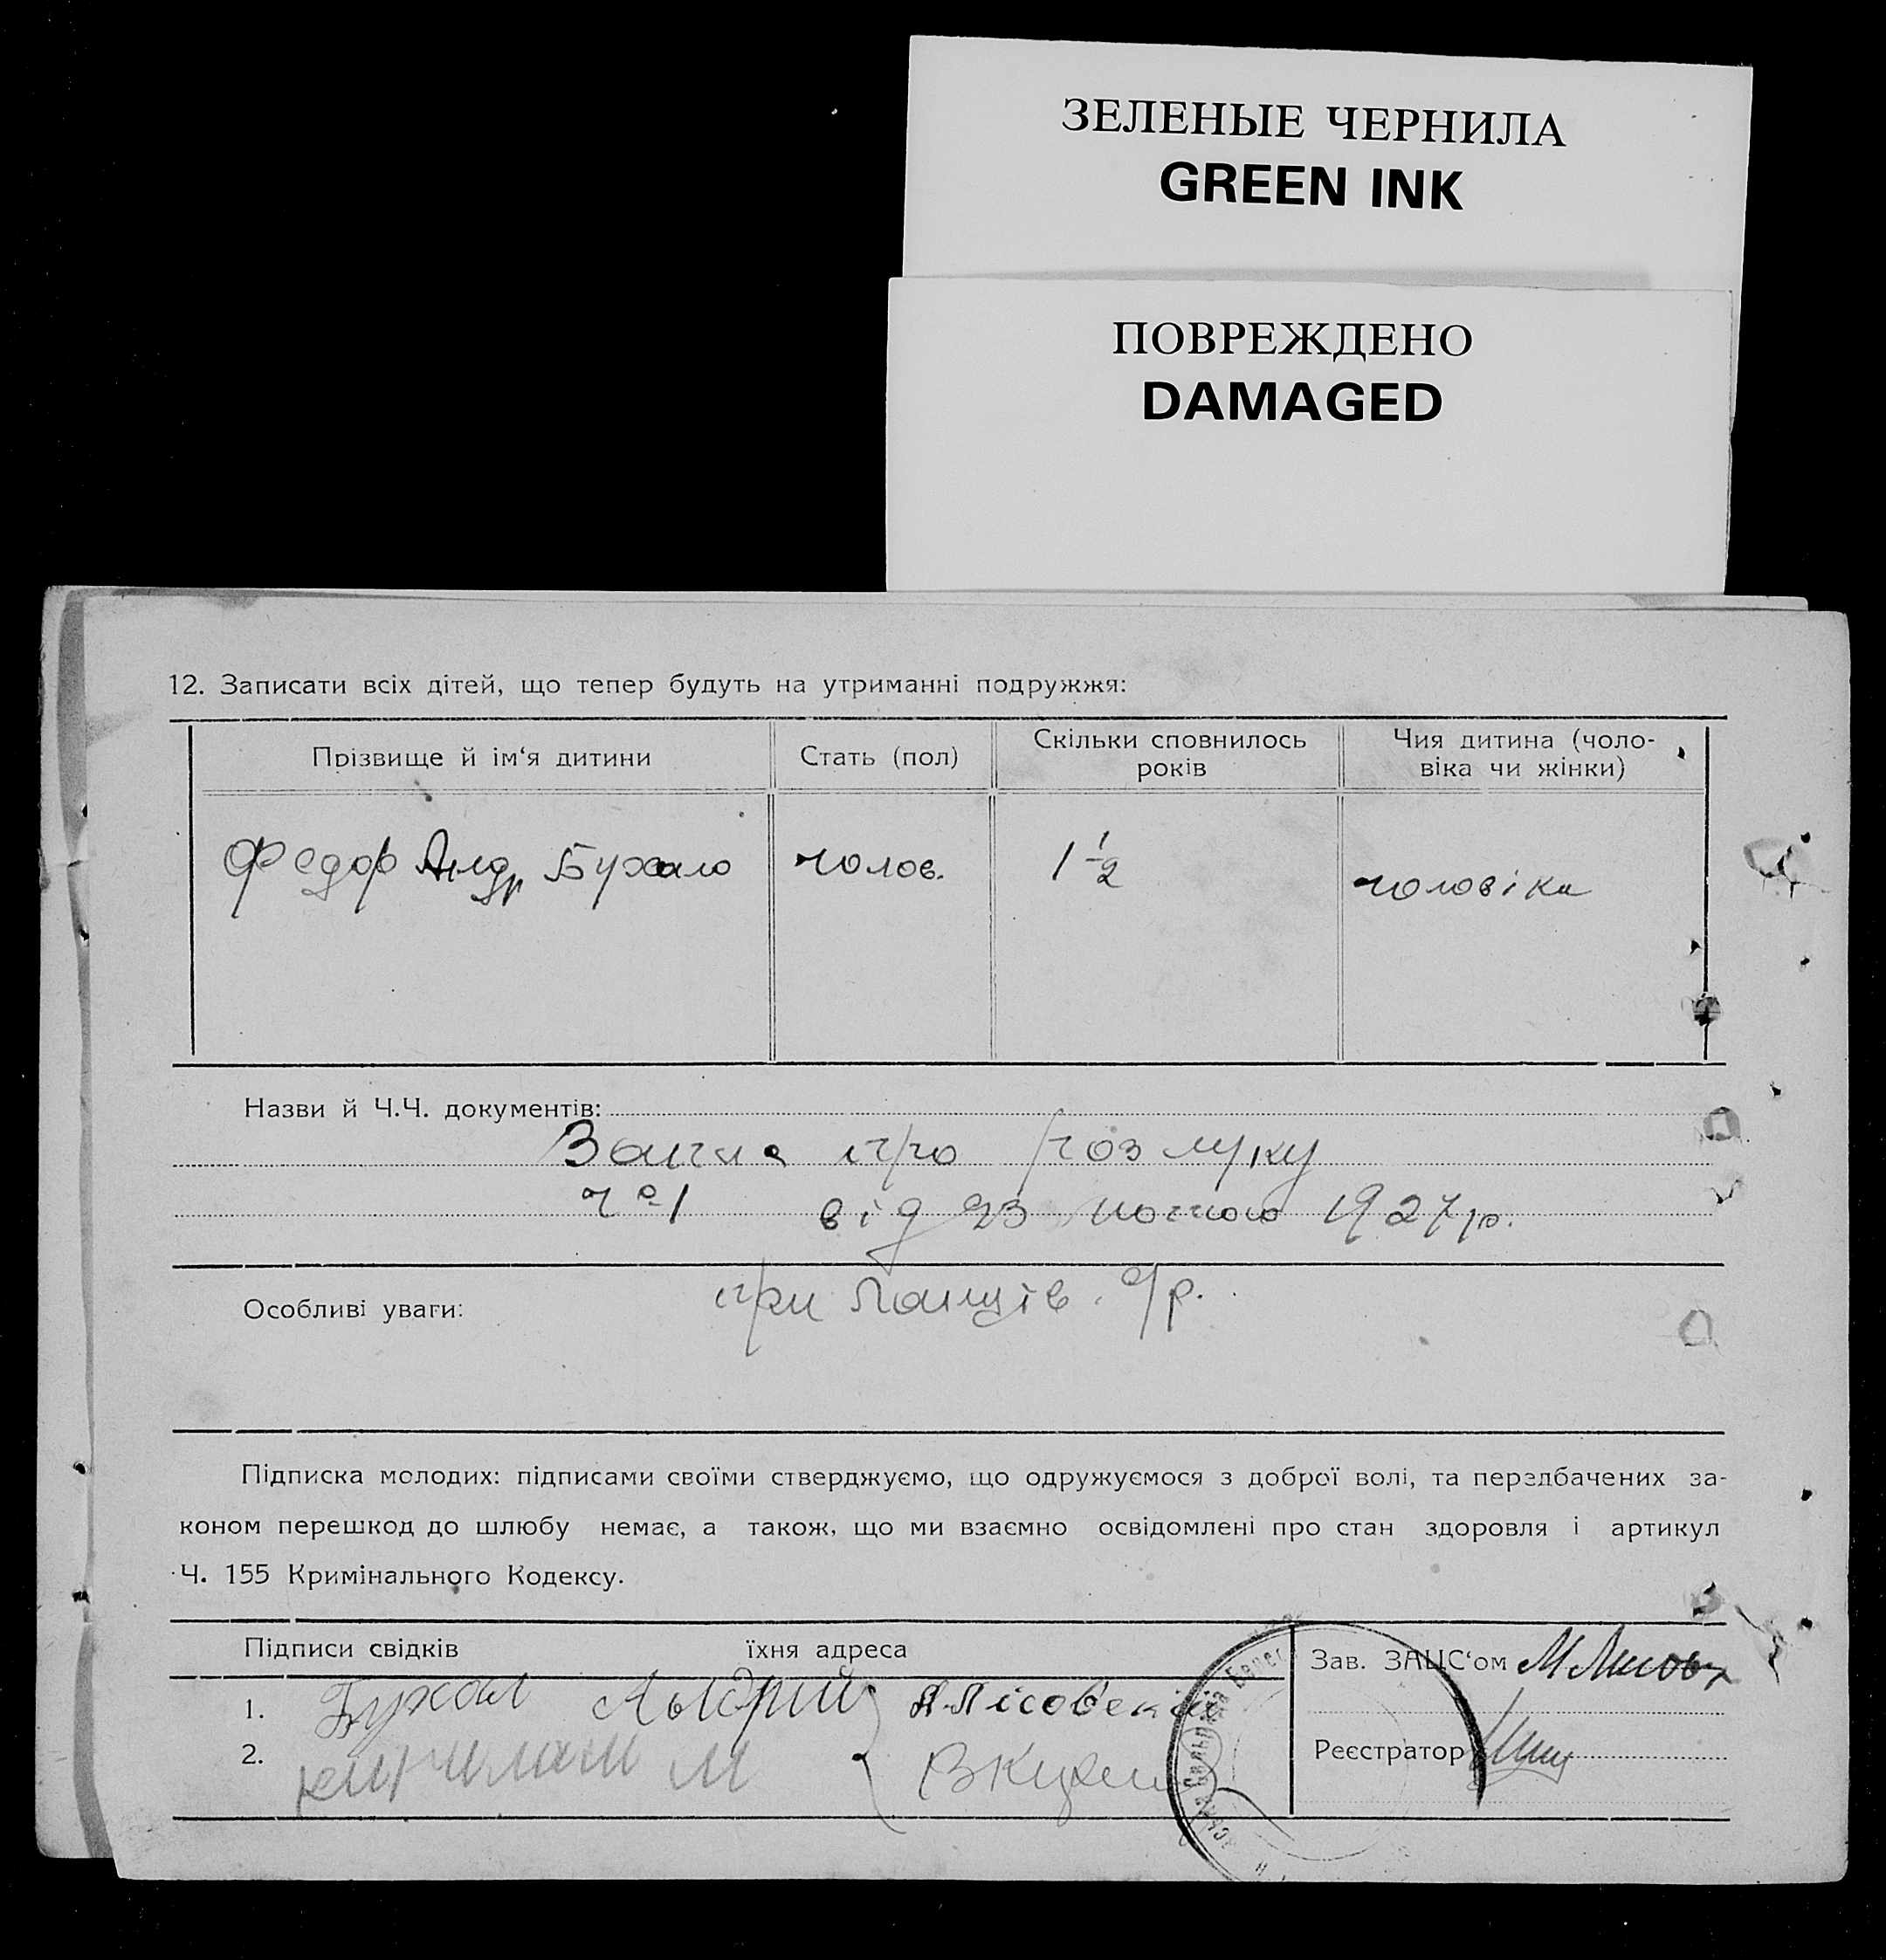 ЗЕЛЕНЫЕ ЧЕРНИЛА
GREEN INK
ПОВРЕЖДЕНО
DAMAGED
12. Записати всіх дітей, що тепер будуть на утриманні подружжя:
Прізвище й ім‘я дитини
Стать (пол)
Скільки сповнилось років
Чия дитина (чоло-
віка чи жінки)
Федор Андр Бухало
чолов.
1 1/2
чоловіка
Назви й Ч.Ч. документів:
про розлуку
ч 1 від 23 1927 р.
Особливі уваги:
при с/р.
Підписка молодих: підписами своїми стверджуємо, що одружуємося з доброї волі, та передбачених за-
коном перешкод до шлюбу немає, а також, що ми взаємно освідомлені про стан здоровля і артикул
Ч. 155 Кримінального Кодексу.
Підписи свідків
їхня адреса
Зав. ЗАЦС‘ом
1. Бухал Андрий А Лісовський
2. М
Реєстратор